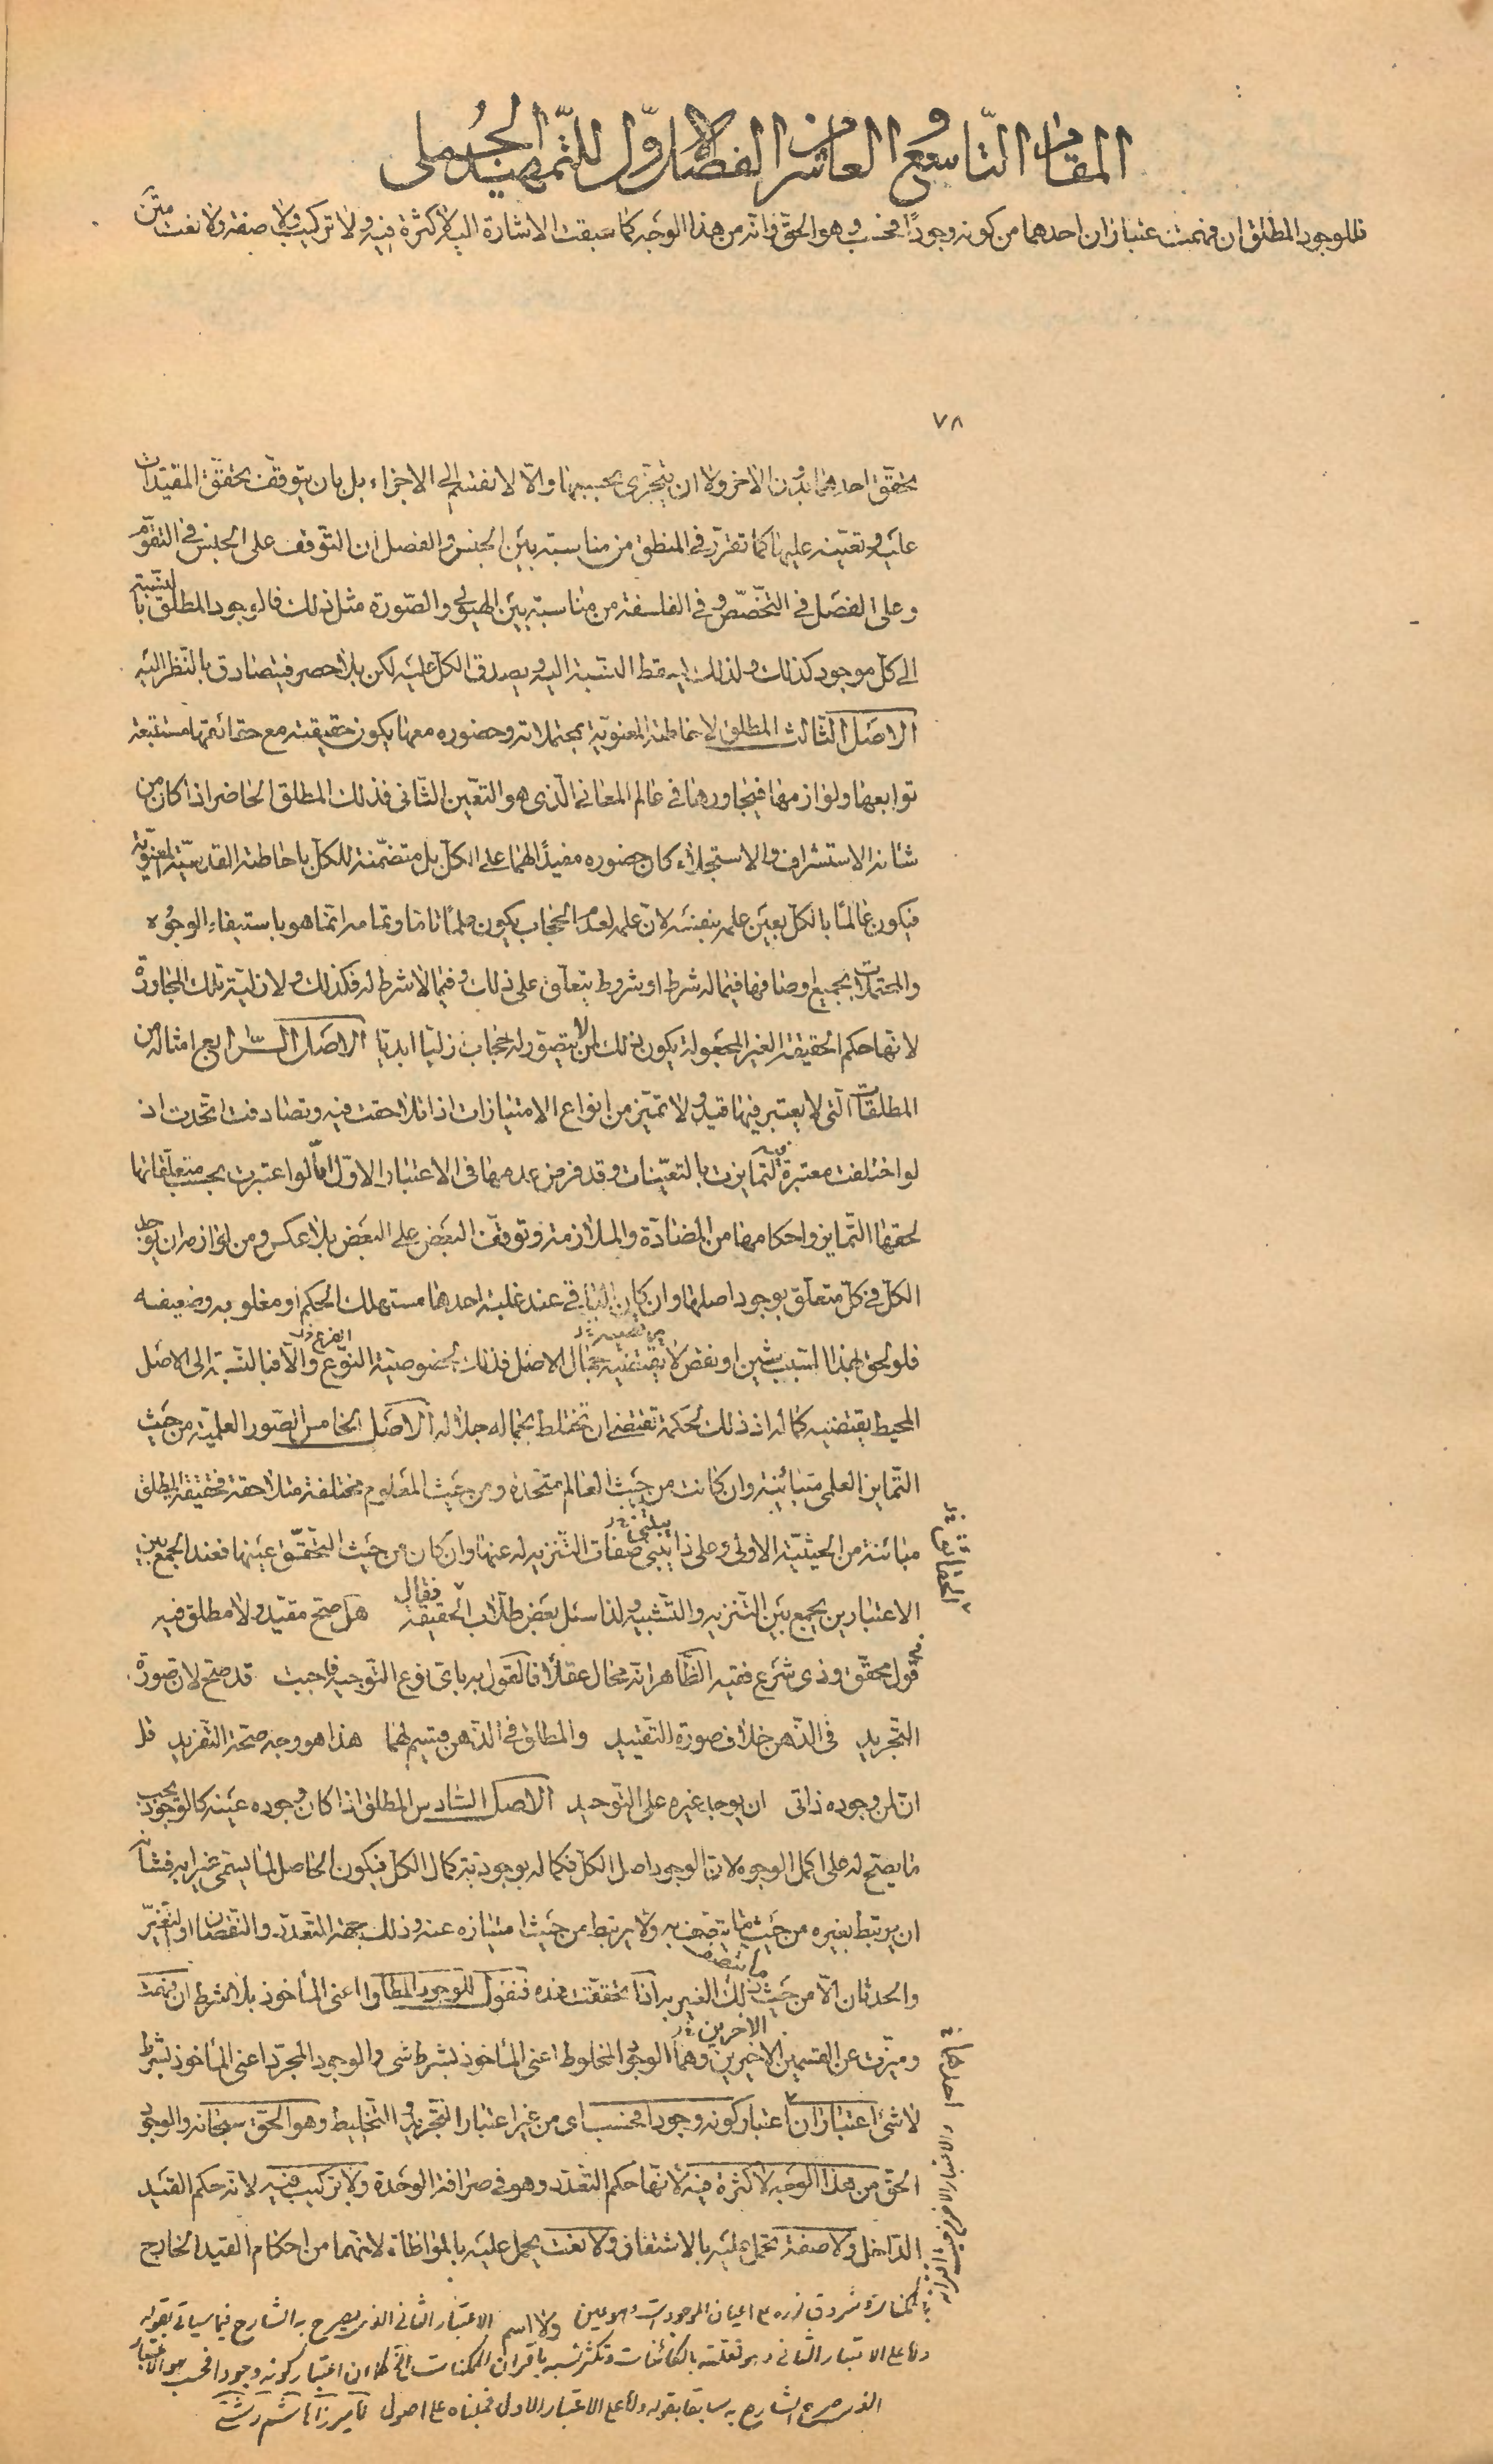 المقام التّاسع و العاشر من الفصل الاوّل للتّمهيد الجُملى
فللوجود المطلق ان فهمت اعتباران احدهما من كونه وجودًا فحسب وهو الحقّ وانّه من هذا الوجه كما سبقت الاشارة اليه لا كثرة فيه ولا تركيب ولا صفة ولا نعت متن
٧٨
تحقّق احدهما بدون الاخر ولا ان يتجزّى بحسبهما والّا لانقسم الى الاجزاء بل بان يتوقّف تحقّق المقيّدات
عليه وتعيّنه عليها كما تقرّر فى المنطق من مناسبة بين الجنس والفصل ان التوقف على الجنس فى التقوّم
وعلى الفصل فى التخصّص وفى الفلسفة من مناسبة بين الهيولى والصّورة مثل ذلك فالوجود المطلق بالنسبة
الى كلّ موجود كذلك ولذلك يسقط النسبة اليه ويصدق الكلّ عليه لكن بلا حصر فيتصادق بالنّظر اليه
الاصل الثّالث المطلق لاحاطته المعنويّة بمحتملاته وحضوره معها يكون حقيقته مع حقائقها مستتبعة
توابعها ولوازمها فيتجاورهما فى عالم المعانى الّذى هو التعيّن الثّانى فذلك المطلق الحاضر اذا كان من
شانه الاستشراف والاستجلاء كان حضوره مفيدًا لهما على الكلّ بل متضمّنة للكلّ باحاطته القدسيّة المعنويّة
فيكون عالمًا بالكلّ بعين علمه بنفسه لانّ علمه لعدم الحجاب يكون علمًا تامّا وتمامه انّما هو باستيفاء الوجُوه
والمحتملات بجميع اوصافها فيما له شرط او شروط يتعلّق على ذلك وفيما لا شرط له فكذلك ولازليّة تلك المجاورة
لانّها حكم الحقيقة الغير المجعولة يكون ذلك لمن لا يتصوّر له حجاب ازليّا ابديّا الاصل الرّابع امثاله من
المطلقات الّتى لا يعتبر فيها قيد ولا تميّز من انواع الامتيازات اذا تلاحقت فيه وتصادفت اتّحدت اذ
لو اختلفت معتبرة فيه لتمايزت بالتعيّنات وقد فرض عدمها فى الاعتبار الاوّل امّا لو اعتبرت بحسب متعلّقاتها
لحقها التّمايز واحكامها من المضادّة والملازمة وتوقّف البعض على البعض بلا عكس ومن لوازمه ان يوجد
الكلّ فى كلّ متعلّق بوجود اصلها وان كان الباقى عند غلبة احدها مستهلك الحكم او مغلوبه وضعيفه
فلو لحق لهذا السّبب شين او نقص لا يقتضيه جمال الاصل فذلك لخصوصيّة النّوع والّا فبالنّسبة الى الاصل
المحيط يقتضيه كماله اذ ذلك لحكمة تقتضى ان تختلط بجماله جلاله الاصل الخامس الصّور العلميّة من حيث
التّمايز العلمى متبائنة وان كانت من حيث العالم متّحدة ومن حيث المعلوم مختلفة متلاحقة فحقيقة المطلق
مبائنة من الحيثيّة الاولى وعلى ذا يبنى صفات التّنزيه له عنها وان كان من حيث التحقّق عينها فعند الجمع بين
الاعتبارين يجمع بين التّنزيه والتّشبيه ولذا سئل بعض طلّاب الحقيقة فقال هل صحّ مقيّد ولا مطلق فيه
فى قول محقّق وذى شرع فقيه الظّاهر انّه محال عقلًا فالقول به باىّ نوع التّوجيه فاجبت قد صحّ لان صورة
التّجريد فى الذّهن خلاف صورة التّقييد والمطلق فى الذّهن قسيم لهما هذا هو وجه صحّة التّفريد قل
انّ لمن وجوده ذاتى ان يوجد غيره على التّوحيد الاصل السّادس المطلق اذا كان وجوده عينه كالوجود يجب
ما يصحّ له على اكمل الوجوه لانّ الوجود اصل الكلّ فكماله بوجود يّة كمال الكلّ فيكون الحاصل لما يسمّى غيرا به فشانه
ان يرتبط بغيره من حيث ما يتّصف به ولا يرتبط من حيث امتيازه عنه وذلك بجهة التّعدّد والنّقصان او التغيّر
والحدثان الّا من حيث ذلك الغير به اذا تحقّقت هذه فنقول للوجود المطلق اعنى المأخوذ بلا شرط ان فهمت
وميزت عن القسمين الاخيرين وهما الوجود المخلوط اعنى المأخوذ بشرط شىء والوجود المجرّد اعنى المأخوذ بشرط
لا شىء اعتباران اعتبار كونه وجودا فحسب اى من غير اعتبار التّجريد والتّخليط وهو الحقّ سبحانه والوجود
الحقّ من هذا الوجه لا كثرة فيه لانّها حكم التّعدّد وهو فى صرافة الوحدة ولا تركيب فيه لانّه حكم القيد
الدّاخل ولا صفة تحمل عليه بالاشتقاق ولا نعت يحمل عليه بالمواطاة لانهما من احكام القيد الخارج
ولا اسم الاعتبار الثانى الذى يصرح به الشارح فيما سياتى بقوله
واما على الاعتبار الثانى وهو تعلقه بالكائنات وتكثر نسبه باقران الممكنات الخ كما ان اعتبار كونه وجودا فحسب هو الاعتبار
الذى صرح الشارح به سابقا بقوله واما على الاعتبار الاول فمبناه على اصول لميرزا هاشم رشتى